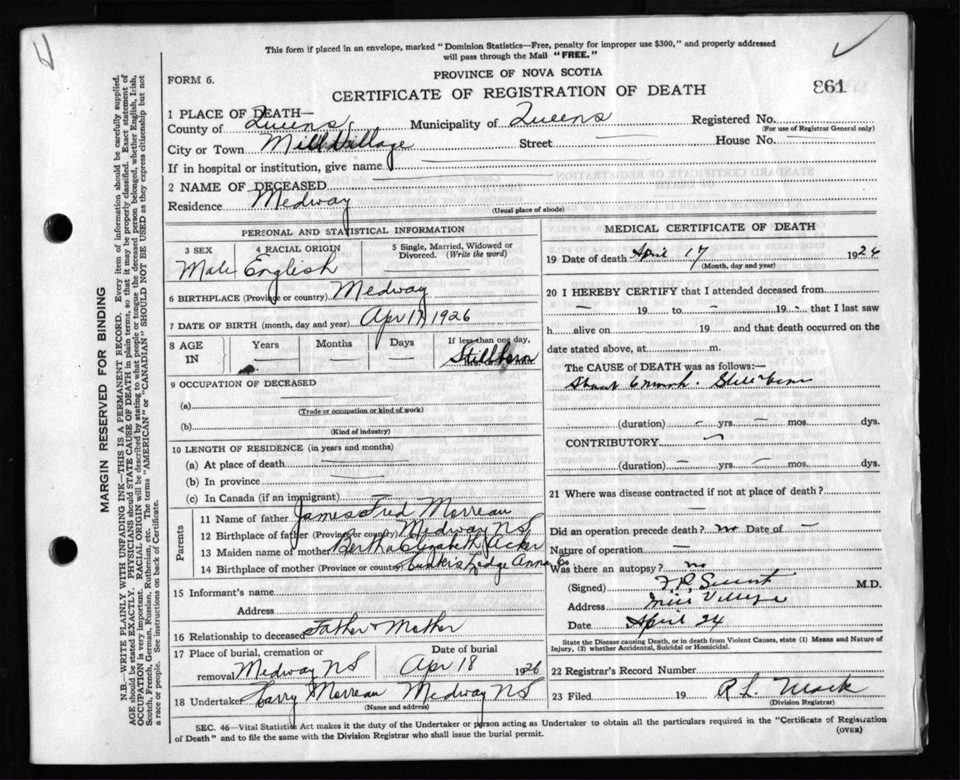 This form if placed in an envelope, marked "Dominion Statistics—Free, penalty for improper use $300," and properly addressed
will pass through the Mail "FREE."
FORM 6.
PROVINCE OF NOVA SCOTIA
CERTIFICATE OF REGISTRATION OF DEATH
861
1 PLACE OF DEATH—
County of Queens Municipality of Queens Registered No.
(For use of Registrar General only)
City or Town Mill Village Street House No.
If in hospital or institution, give name
2 NAME OF DECEASED
Residence Medway
(Usual place of abode)
PERSONAL AND STATISTICAL INFORMATION
3 SEX Male
4 RACIAL ORIGIN English
5 Single, Married, Widowed or Divorced. (Write the word)
6 BIRTHPLACE (Province or country) Medway
7 DATE OF BIRTH (month, day and year) Apr 17 1926
8 AGE IN Years Months Days If less than one day,
Stillborn
9 OCCUPATION OF DECEASED
(a)
(Trade or occupation or kind of work)
(b)
(Kind of industry)
10 LENGTH OF RESIDENCE (in years and months)
(a) At place of death
(b) In province
(c) In Canada (if an immigrant)
Parents
11 Name of father James Fred Morreau
12 Birthplace of father (Province or country) Medway NS
13 Maiden name of mother Bertha Elizabeth Acker
14 Birthplace of mother (Province or country) Bunkers Ledge
15 Informant's name
Address
16 Relationship to deceased Father & Mother
17 Place of burial, cremation or removal Medway NS
Date of burial Apr 18 1926
18 Undertaker Harry Morreau Medway NS
(Name and address)
MEDICAL CERTIFICATE OF DEATH
19 Date of death April 17 1926
(Month, day and year)
20 I HEREBY CERTIFY that I attended deceased from
— 19 — to — 19 — that I last saw
h alive on 19 and that death occurred on the
date stated above, at m.
The CAUSE OF DEATH was as follows:—
Still born
(duration) – yrs – mos. dys.
CONTRIBUTORY
(duration) – yrs – mos. dys.
21 Where was disease contracted if not at place of death?
Did an operation precede death? no Date of —
Nature of operation —
Was there an autopsy? no
(Signed) M.D.
Address Mill Village
Date April 24
State the Disease causing Death, or in death from Violent Causes, state (1) Means and Nature of
Injury, (2) whether Accidental, Suicidal or Homicidal.
22 Registrar's Record Number
23 Filed 19 R L Mack
(Division Registrar)
SEC. 46—Vital Statistics Act makes it the duty of the Undertaker or person acting as Undertaker to obtain all the particulars required in the "Certificate of Registration
of Death" and to file the same with the Division Registrar who shall issue the burial permit.
(OVER)
MARGIN RESERVED FOR BINDING
N.B.—WRITE PLAINLY WITH UNFADING INK—THIS IS A PERMANENT RECORD. Every item of information should be carefully supplied.
AGE should be stated EXACTLY. PHYSICIANS should STATE CAUSE OF DEATH in plain terms, so that it may be properly classified. Exact statement of
OCCUPATION is very important. RACIAL ORIGIN will be described by stating to what people or tongue the deceased person belonged, whether English, Irish,
Scotch, French, German, Russian, Ruthenian, etc. The terms "AMERICAN" or "CANADIAN" SHOULD NOT BE USED as they express citizenship but not
a race or people. See instructions on back of Certificate.